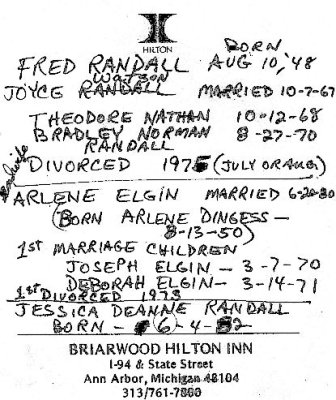 HILTON
BORN
FRED RANDALL AUG 10, '48
WATSON
JOYCE RANDALL MARRIED 10-7-67
THEODORE NATHAN 10-12-68
BRADLEY NORMAN 8-27-70
RANDALL
DIVORCED 1975 (JULY OR AUG)
ARLENE ELGIN MARRIED 6-20-80
(BORN ARLENE DINGESS -
8-13-50)
1ST MARRIAGE CHILDREN
JOSEPH ELGIN - 3-7-70
DEBORAH ELGIN - 3-14-71
1ST DIVORCED 1973
JESSICA DEANNE RANDALL
BORN - 6-4-82
BRIARWOOD HILTON INN
I-94 & State Street
Ann Arbor, Michigan 48104
313/761-7800